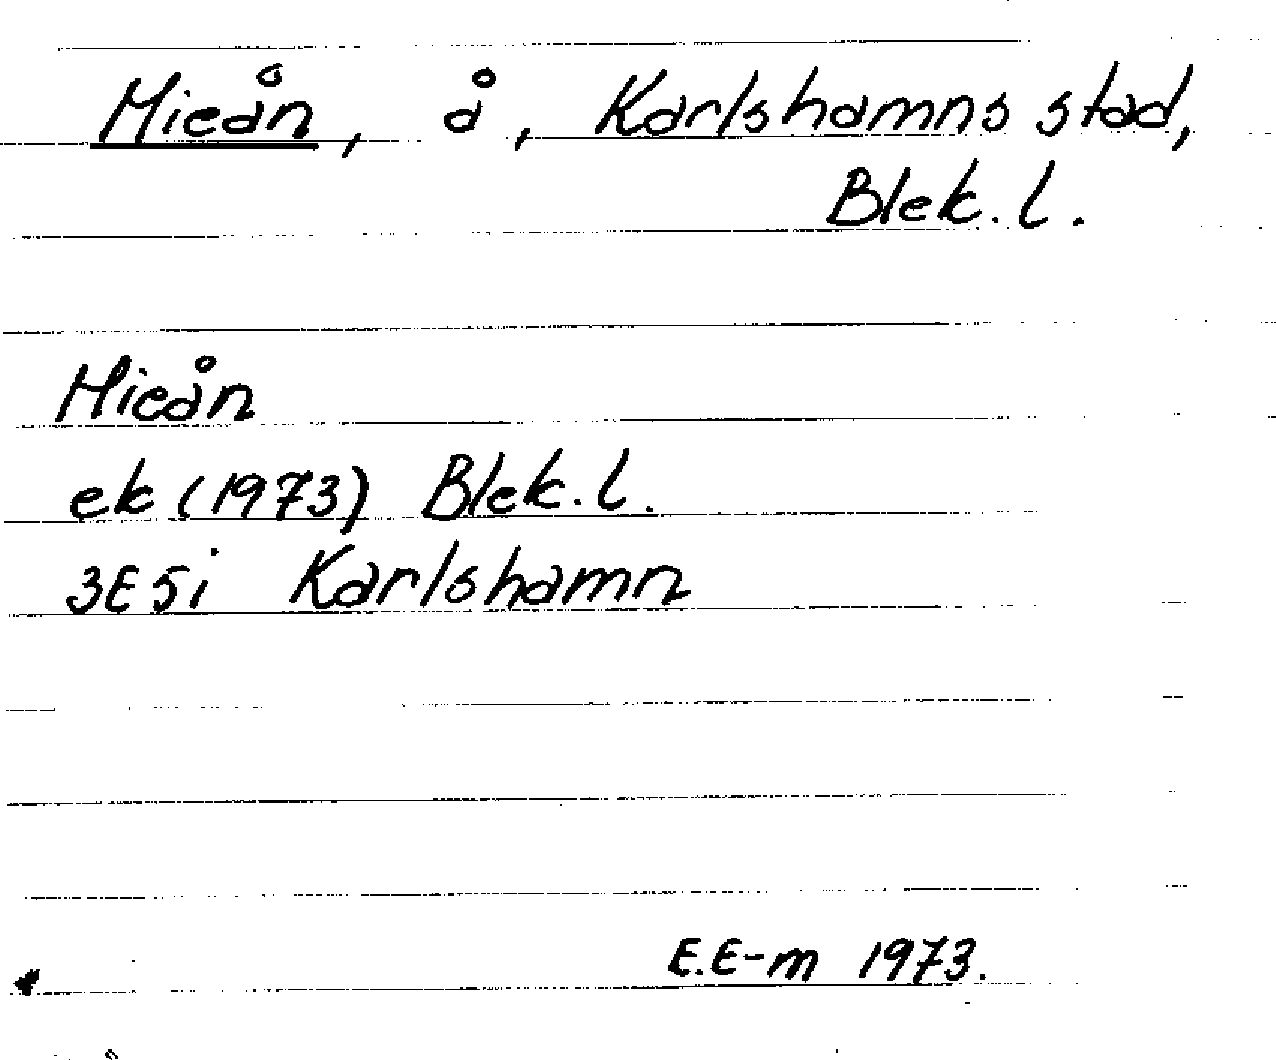 Mieån, å, Karlshamns stad,
Blek. l.
Mieån
ek (1973) Blek. l.
3E5i Karlshamn
E.E-m 1973.